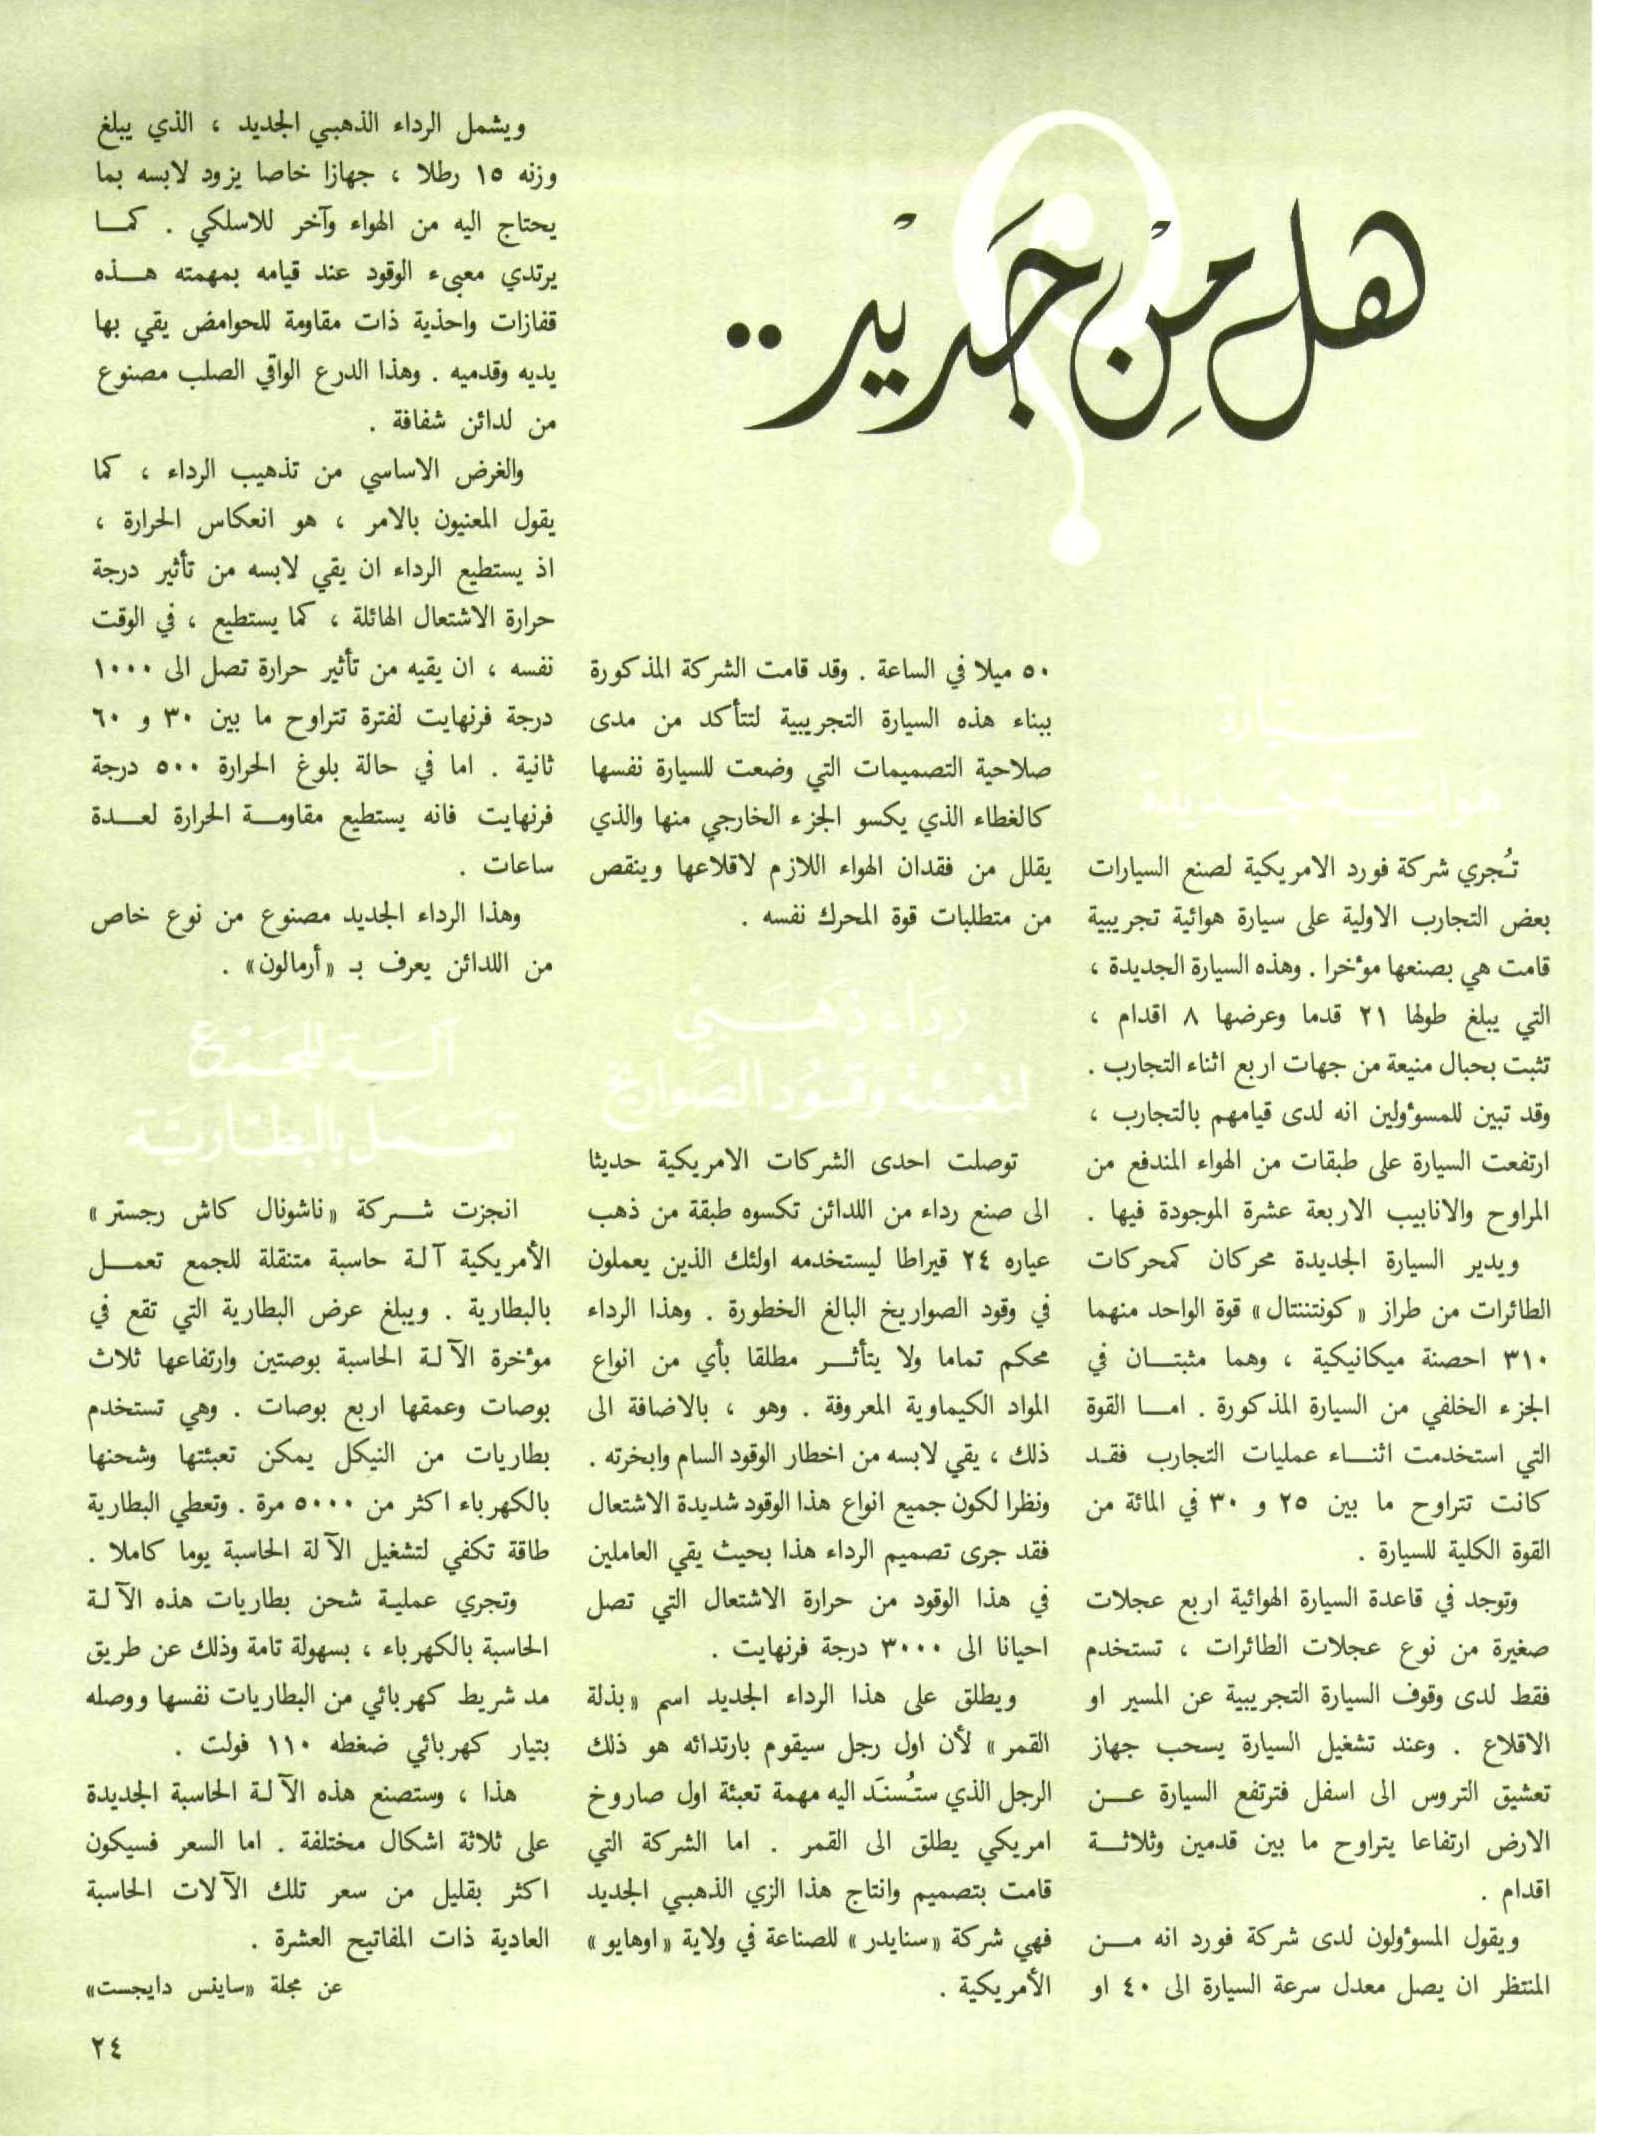 هل من جديد ..
سيارة
هوائية جديدة
تُجري شركة فورد الامريكية لصنع السيارات
بعض التجارب الاولية على سيارة هوائية تجريبية
قامت هي بصنعها موٴخرا . وهذه السيارة الجديدة ،
التي يبلغ طولها ٢١ قدما وعرضها ٨ اقدام ،
تثبت بحبال منيعة من جهات اربع اثناء التجارب .
وقد تبين للمسوٴولين انه لدى قيامهم بالتجارب ،
ارتفعت السيارة على طبقات من الهواء المندفع من
المراوح والانابيب الاربعة عشرة الموجودة فيها .
ويدير السيارة الجديدة محركان كمحركات
الطائرات من طراز «كونتننتال» قوة الواحد منهما
٣١٠ احصنة ميكانيكية ، وهما مثبتـــان في
الجزء الخلفي من السيارة المذكورة . امـــا القوة
التي استخدمت اثنـــاء عمليات التجارب فقـد
كانت تتراوح ما بين ٢٥ و ٣٠ في المائة من
القوة الكلية للسيارة .
وتوجد في قاعدة السيارة الهوائية اربع عجلات
صغيرة من نوع عجلات الطائرات ، تستخدم
فقط لدى وقوف السيارة التجريبية عن المسير او
الاقلاع . وعند تشغيل السيارة يسحب جهاز
تعشيق التروس الى اسفل فترتفع السيارة عـــن
الارض ارتفاعا يتراوح ما بين قدمين وثلاثـــة
اقدام .
ويقول المسوٴولون لدى شركة فورد انه مـــن
المنتظر ان يصل معدل سرعة السيارة الى ٤٠ او
٥٠ ميلا في الساعة . وقد قامت الشركة المذكورة
ببناء هذه السيارة التجريبية لتتأكد من مدى
صلاحية التصميمات التي وضعت للسيارة نفسها
كالغطاء الذي يكسو الجزء الخارجي منها والذي
يقلل من فقدان الهواء اللازم لاقلاعها وينقص
من متطلبات قوة المحرك نفسه .
رداء ذهبي
لتعبئة وقود الصواريخ
توصلت احدى الشركات الامريكية حديثا
الى صنع رداء من اللدائن تكسوه طبقة من ذهب
عياره ٢٤ قيراطا ليستخدمه اولئك الذين يعملون
في وقود الصواريخ البالغ الخطورة . وهذا الرداء
محكم تماما ولا يتأثـــر مطلقا بأي من انواع
المواد الكيماوية المعروفة . وهو ، بالاضافة الى
ذلك ، يقي لابسه من اخطار الوقود السام وابخرته .
ونظرا لكون جميع انواع هذا الوقود شديدة الاشتعال
فقد جرى تصميم الرداء هذا بحيث يقي العاملين
في هذا الوقود من حرارة الاشتعال التي تصل
احيانا الى ٣٠٠٠ درجة فرنهايت .
ويطلق على هذا الرداء الجديد اسم «بذلة
القمر» لأن اول رجل سيقوم بارتدائه هو ذلك
الرجل الذي ستُسنَد اليه مهمة تعبئة اول صاروخ
امريكي يطلق الى القمر . اما الشركة التي
قامت بتصميم وانتاج هذا الزي الذهبي الجديد
فهي شركة «سنايدر» للصناعة في ولاية «اوهايو»
الأمريكية .
ويشمل الرداء الذهبي الجديد ، الذي يبلغ
وزنه ١٥ رطلا ، جهازا خاصا يزود لابسه بما
يحتاج اليه من الهواء وآخر للاسلكي . كمـــا
يرتدي معبىء الوقود عند قيامه بمهمته هـــذه
قفازات واحذية ذات مقاومة للحوامض يقي بها
يديه وقدميه . وهذا الدرع الواقي الصلب مصنوع
من لدائن شفافة .
والغرض الاساسي من تذهيب الرداء ، كما
يقول المعنيون بالامر ، هو انعكاس الحرارة ،
اذ يستطيع الرداء ان يقي لابسه من تأثير درجة
حرارة الاشتعال الهائلة ، كما يستطيع ، في الوقت
نفسه ، ان يقيه من تأثير حرارة تصل الى ١٠٠٠
درجة فرنهايت لفترة تتراوح ما بين ٣٠ و ٦٠
ثانية . اما في حالة بلوغ الحرارة ٥٠٠ درجة
فرنهايت فانه يستطيع مقاومـــة الحرارة لعـــدة
ساعات .
وهذا الرداء الجديد مصنوع من نوع خاص
من اللدائن يعرف بـ «أرمالون» .
آلـــة للجمع
تعمل بالبطارية
انجزت شـــركة «ناشونال كاش رجستر»
الأمريكية آلـة حاسبة متنقلة للجمع تعمـــل
بالبطارية . ويبلغ عرض البطارية التي تقع في
موٴخرة الآلـة الحاسبة بوصتين وارتفاعها ثلاث
بوصات وعمقها اربع بوصات . وهي تستخدم
بطاريات من النيكل يمكن تعبئتها وشحنها
بالكهرباء اكثر من ٥٠٠٠ مرة . وتعطي البطارية
طاقة تكفي لتشغيل الآلة الحاسبة يوما كاملا .
وتجري عمليـة شحن بطاريات هذه الآلـة
الحاسبة بالكهرباء ، بسهولة تامة وذلك عن طريق
مد شريط كهربائي من البطاريات نفسها ووصله
بتيار كهربائي ضغطه ١١٠ فولت .
هذا ، وستصنع هذه الآلـة الحاسبة الجديدة
على ثلاثة اشكال مختلفة . اما السعر فسيكون
اكثر بقليل من سعر تلك الآلات الحاسبة
العادية ذات المفاتيح العشرة .
عن مجلة «ساينس دايجست»
٢٤